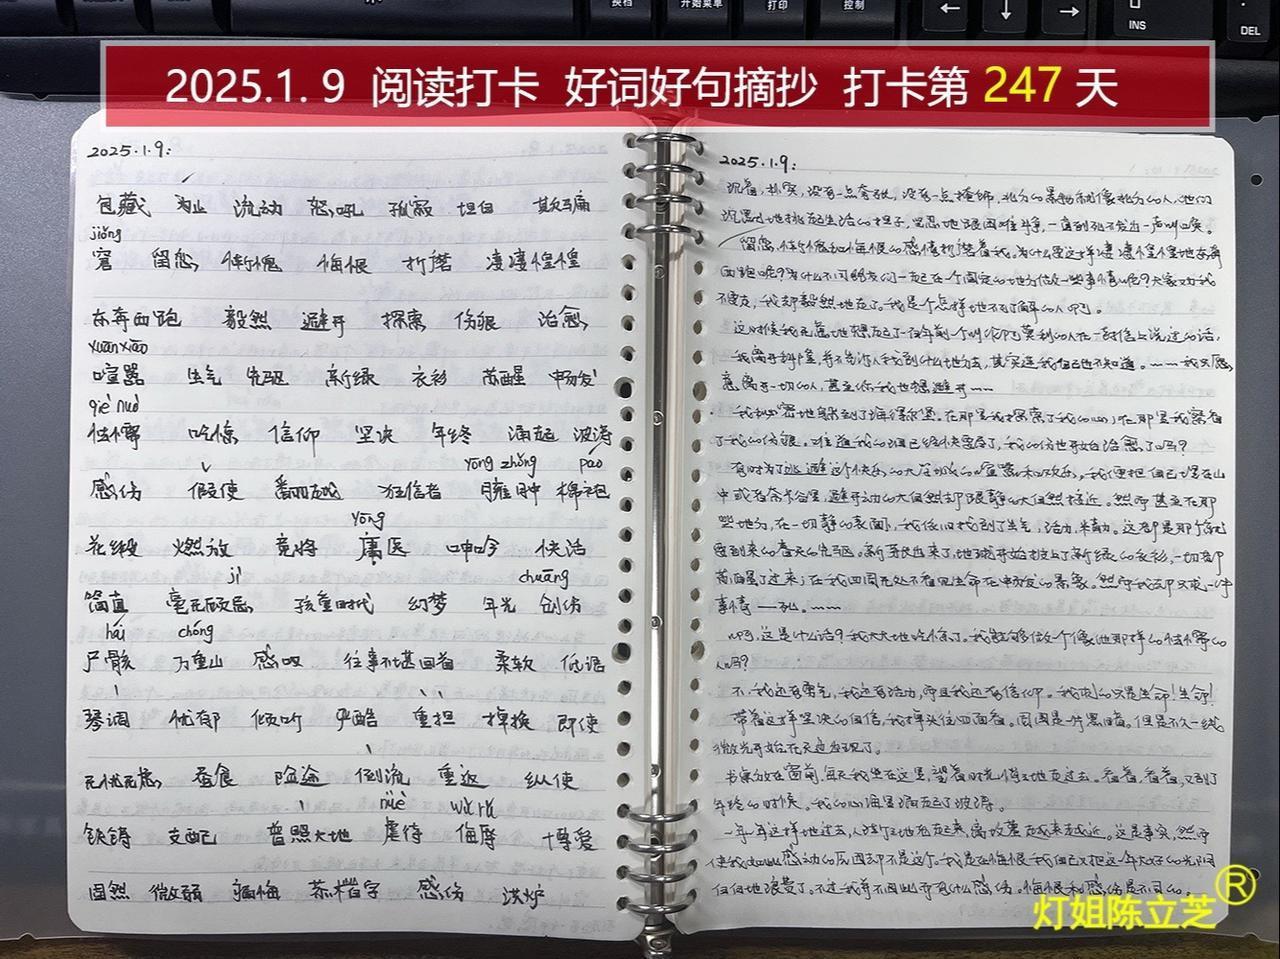 换档
开始菜单
打印
控制
INS
DEL
2025.1.9 阅读打卡 好词好句摘抄 打卡第 247 天
2025.1.9:
包藏 为止 流动 怒吼 孤寂 坦白
jiǒng
窘 留恋 惭愧 悔恨 折磨 凄凄惶惶
东奔西跑 毅然 避开 探索 伤痕 治愈
xuān xiāo
喧嚣 生气 先驱 新绿 衣衫 苏醒 萌发
qiè nuò
怯懦 吃惊 信仰 坚决 年终 涌起 波涛
yōng zhǒng páo
感伤 假使 翻 狂信者 臃肿 棉袍
yōng
花缎 燃放 竟将 庸医 呻吟 快活
jì chuāng
简直 毫无顾忌 孩童时代 幻梦 年光 创伤
hái chóng
尸骸 万重山 感叹 往事不堪回首 柔软 低语
琴调 忧郁 倾听 严酷 重担 掉换 即使
无忧无虑 蚕食 险途 倒流 重返 纵使
nüè wǔ rǔ
铁铸 支配 普照大地 虐待 侮辱 博爱
固然 微弱 忏悔 茶褐色 感伤 洪炉
2025.1.9:
沉着,朴实,没有一点夸张,没有一点掩饰,北方的景物就像北方的人,他们
沉默地挑起生活的担子,坚忍地跟困难斗争,一直到死不发出一声叫唤。
留恋、惭愧和悔恨的感情折磨着我。为什么要这样凄凄惶惶地东奔
西跑呢?为什么不同朋友们一起在一个固定的地方做一些事情呢?大家劝我
不要走,我却毅然地走了。我是个怎样地不可了解的人啊。
这时候我无意地想起了一百年前一个叫做阿莫利的人在一封信上说过的话,
我离开科隆,并不告诉人我到什么地方去,其实连我自己也不知道。……我只愿
意离开一切的人,甚至你我也想避开……
我秘密地躲到了海得尔堡。在那里我探索了我的心;在那里我察看
了我的伤痕。难道我的泪已经快要尽了,我的伤也开始治愈了吗?
有时为了逃避这个快乐的大学城的喧嚣和欢乐,我便把自己埋在山
中或者奈卡谷里,避开动的大自然却跟静的大自然接近。然而甚至在那
些地方,在一切静的表面下,我依旧找到了生气,活力,本能力。这都是那个就
要到来的春天的先驱。新芽长出来了,地球开始披上了新绿的衣衫,一切都
苏醒了过来;在我四周无处不看见生命在萌发的景象。然而我却只求一件
事情——死。……
啊,这是什么话?我大大地吃惊了。我能够做个像他那样的怯懦的
人吗?
不,我还有勇气,我还有活力,而且我还有信仰。我求的只是生命!生命!
带着这样坚决的自信,我掉头往四面看。周围是一片黑暗。但是不久一线
微光开始在天边出现了。
书桌放在窗前,每天我坐在这里,望着时光悄悄地走过去。看着,看着,又到了
年终的时候。我的心海里涌起了波涛。
一年一年这样地过去,人渐渐地老起来,离坟墓越来越近。这是事实,然而
使我如此感动的原因却不是这个。我是在悔恨我自己又把这一年大好的光阴
白白地浪费了。不过我并不因此而有什么感伤。悔恨和感伤是不同的。
灯姐陈立芝®